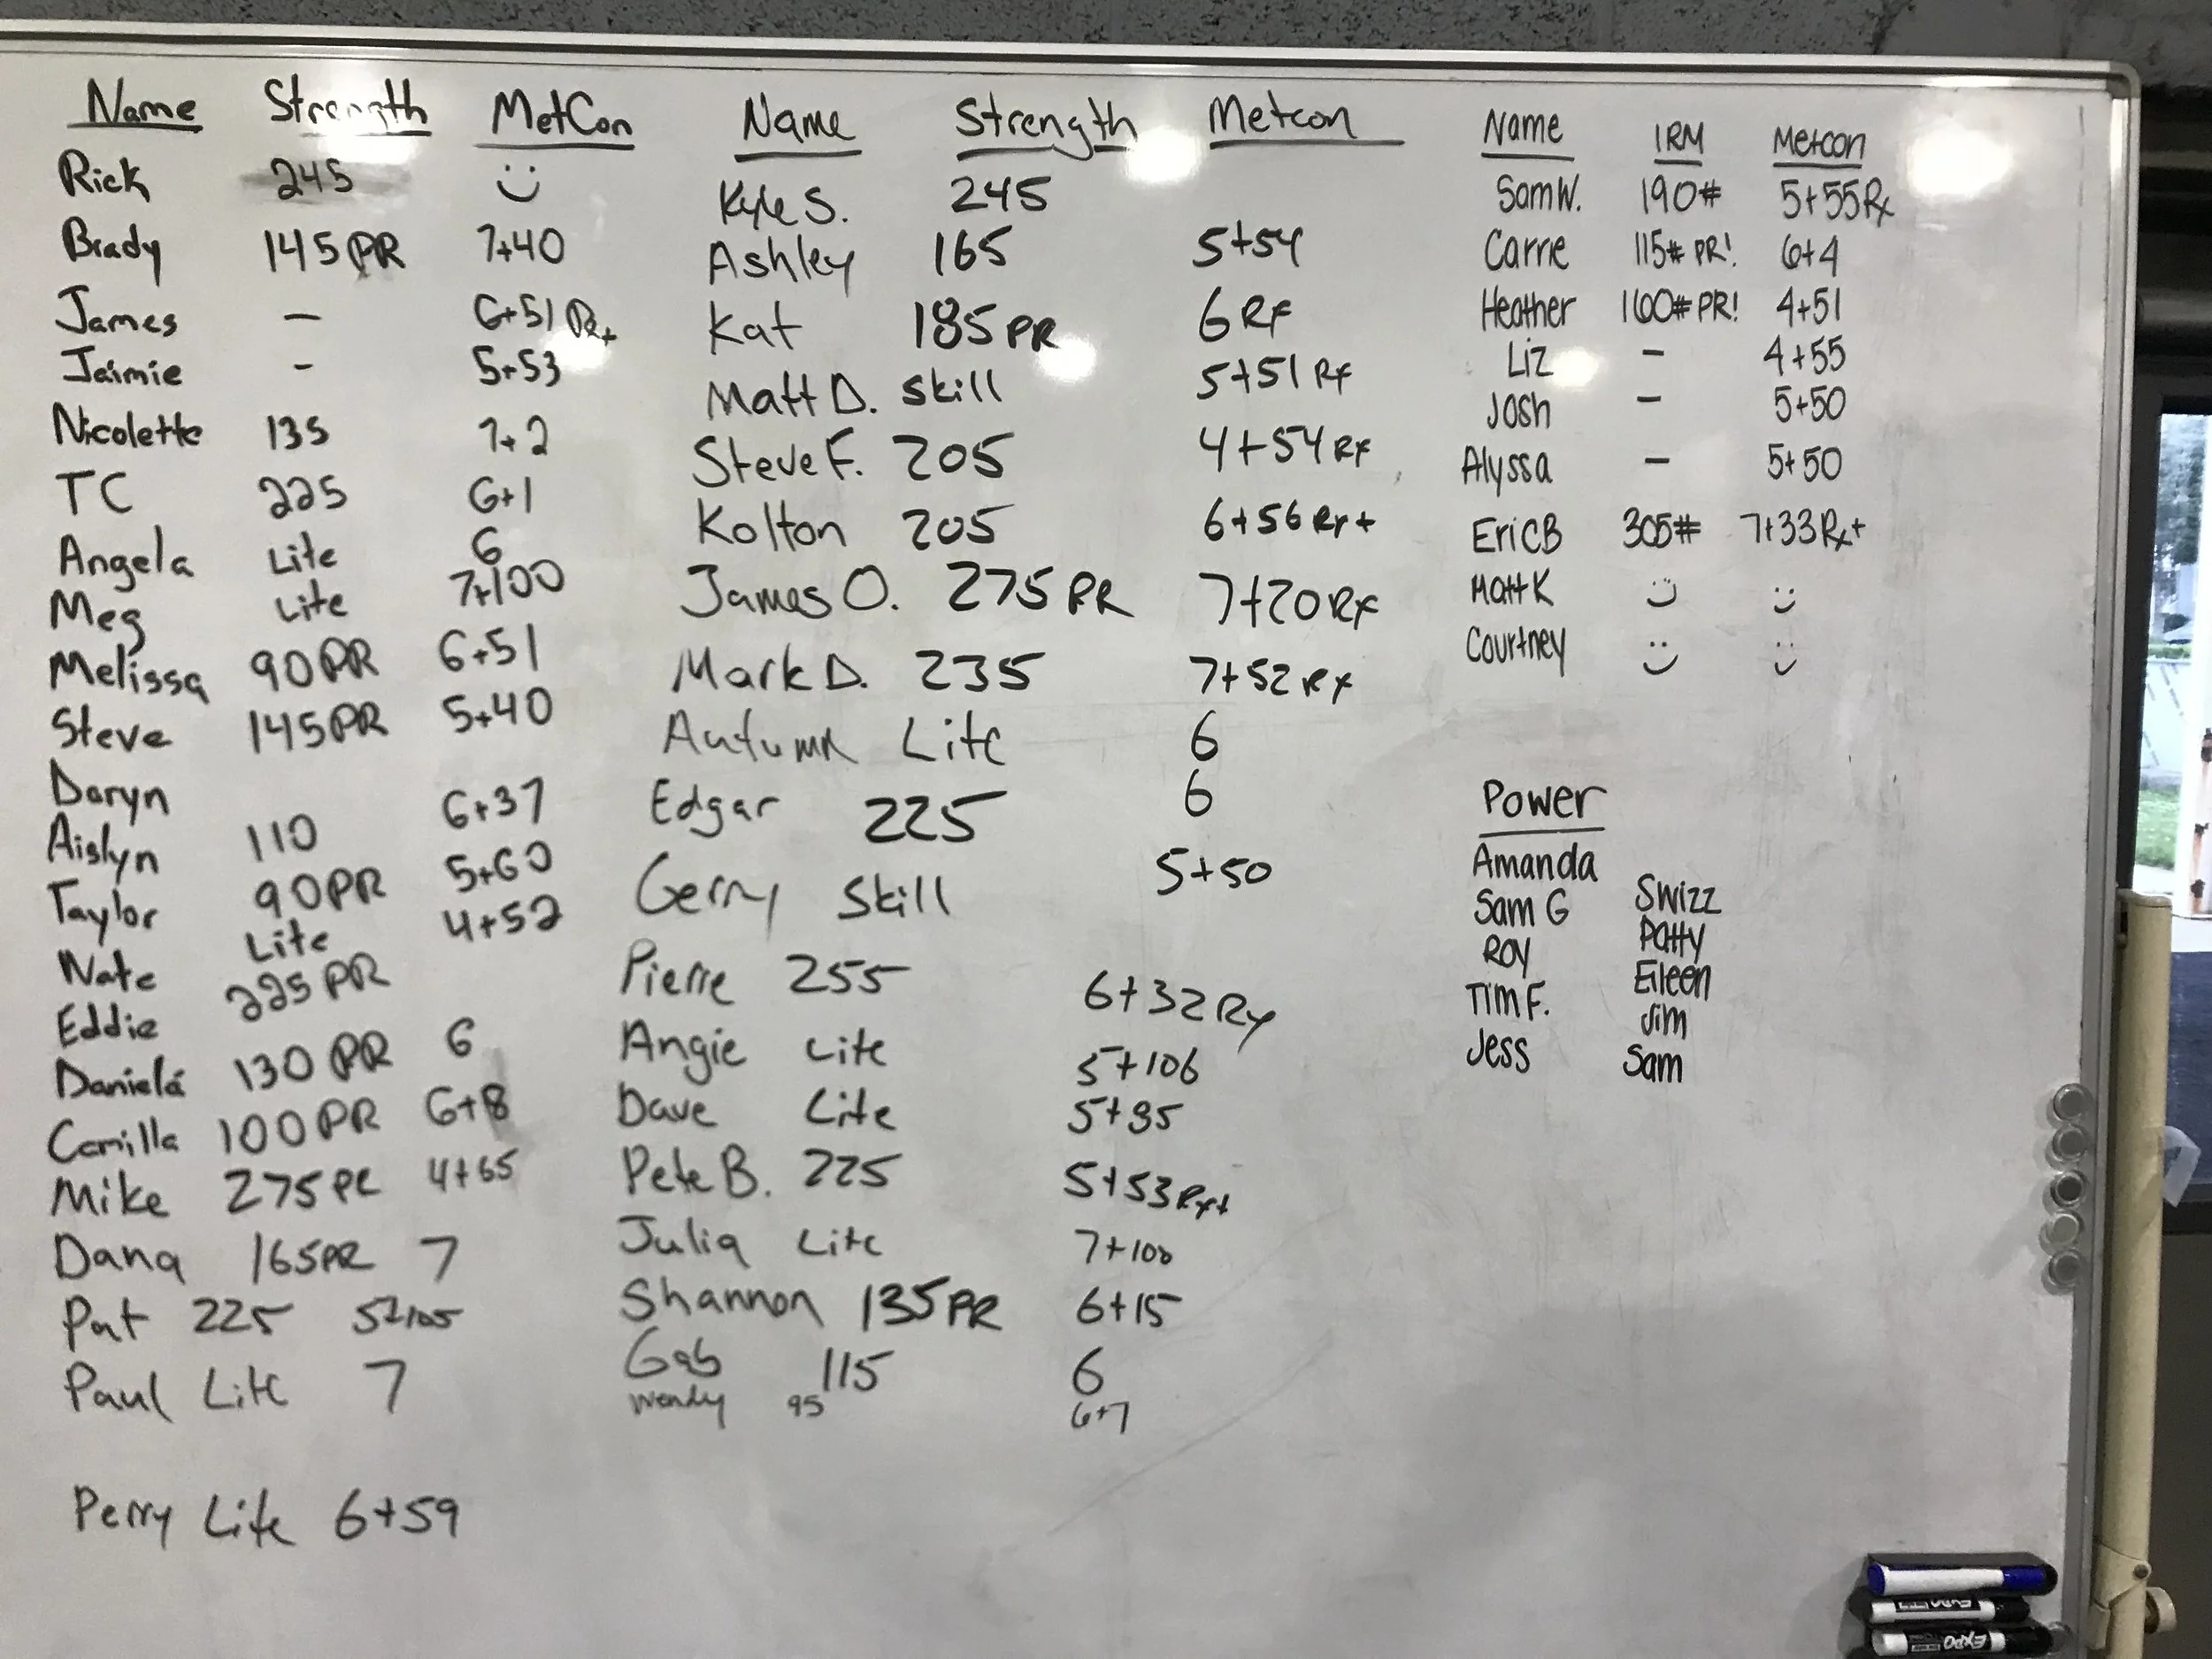 Name Strength MetCon
Rick 245
Brady 145 PR 7+40
James — 6+51 Rx+
Jaimie - 5+53
Nicolette 135 7+2
TC 225 6+1
Angela Lite 6
Meg Lite 7+100
Melissa 90 PR 6+51
Steve 145 PR 5+40
Daryn
Aislyn 110 6+37
Taylor 90 PR 5+60
Nate Lite 4+52
Eddie 225 PR
Daniela 130 PR 6
Camilla 100 PR 6+8
Mike 275 PR 4+65
Dana 165 PR 7
Pat 225 5+105
Paul Lite 7
Perry Lite 6+59
Name Strength Metcon
Kyle S. 245
Ashley 165 5+54
Kat 185 PR 6 Rx
Matt D. Skill 5+51 Rx
Steve F. 205 4+54 Rx
Kolton 205 6+56 Rx+
James O. 275 PR 7+20 Rx
Mark D. 235 7+52 Rx
Autumn Lite 6
Edgar 225 6
Gerry Skill 5+50
Pierre 255 6+32 Rx
Angie Lite 5+106
Dave Lite 5+95
Pete B. 225 5+53 Rx+
Julia Lite 7+100
Shannon 135 PR 6+15
Gab 115 6
Wendy 95 6+7
Name 1RM Metcon
Sam W. 190# 5+55 Rx
Carrie 115# PR! 6+4
Heather 160# PR! 4+51
Liz — 4+55
Josh — 5+50
Alyssa — 5+50
Eric B 305# 7+33 Rx+
Matt K
Courtney
Power
Amanda
Sam G Swizz
Roy Patty
Tim F. Eileen
Jess Jim
Sam
EXPO
EXPO